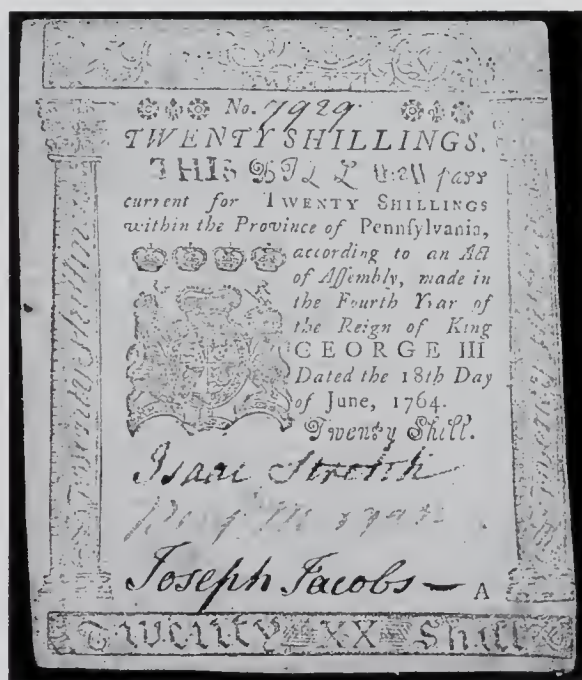 No. 7929
TWENTY SHILLINGS.
THIS BILL shall pass
current for TWENTY SHILLINGS
within the Province of Pennſylvania,
according to an Act
of Aſſembly, made in
the Fourth Year of
the Reign of King
GEORGE III
Dated the 18th Day
of June, 1764.
Twenty Shill.
Isaac
Joseph Jacobs
A
Twenty XX Shill
Twenty Shillin